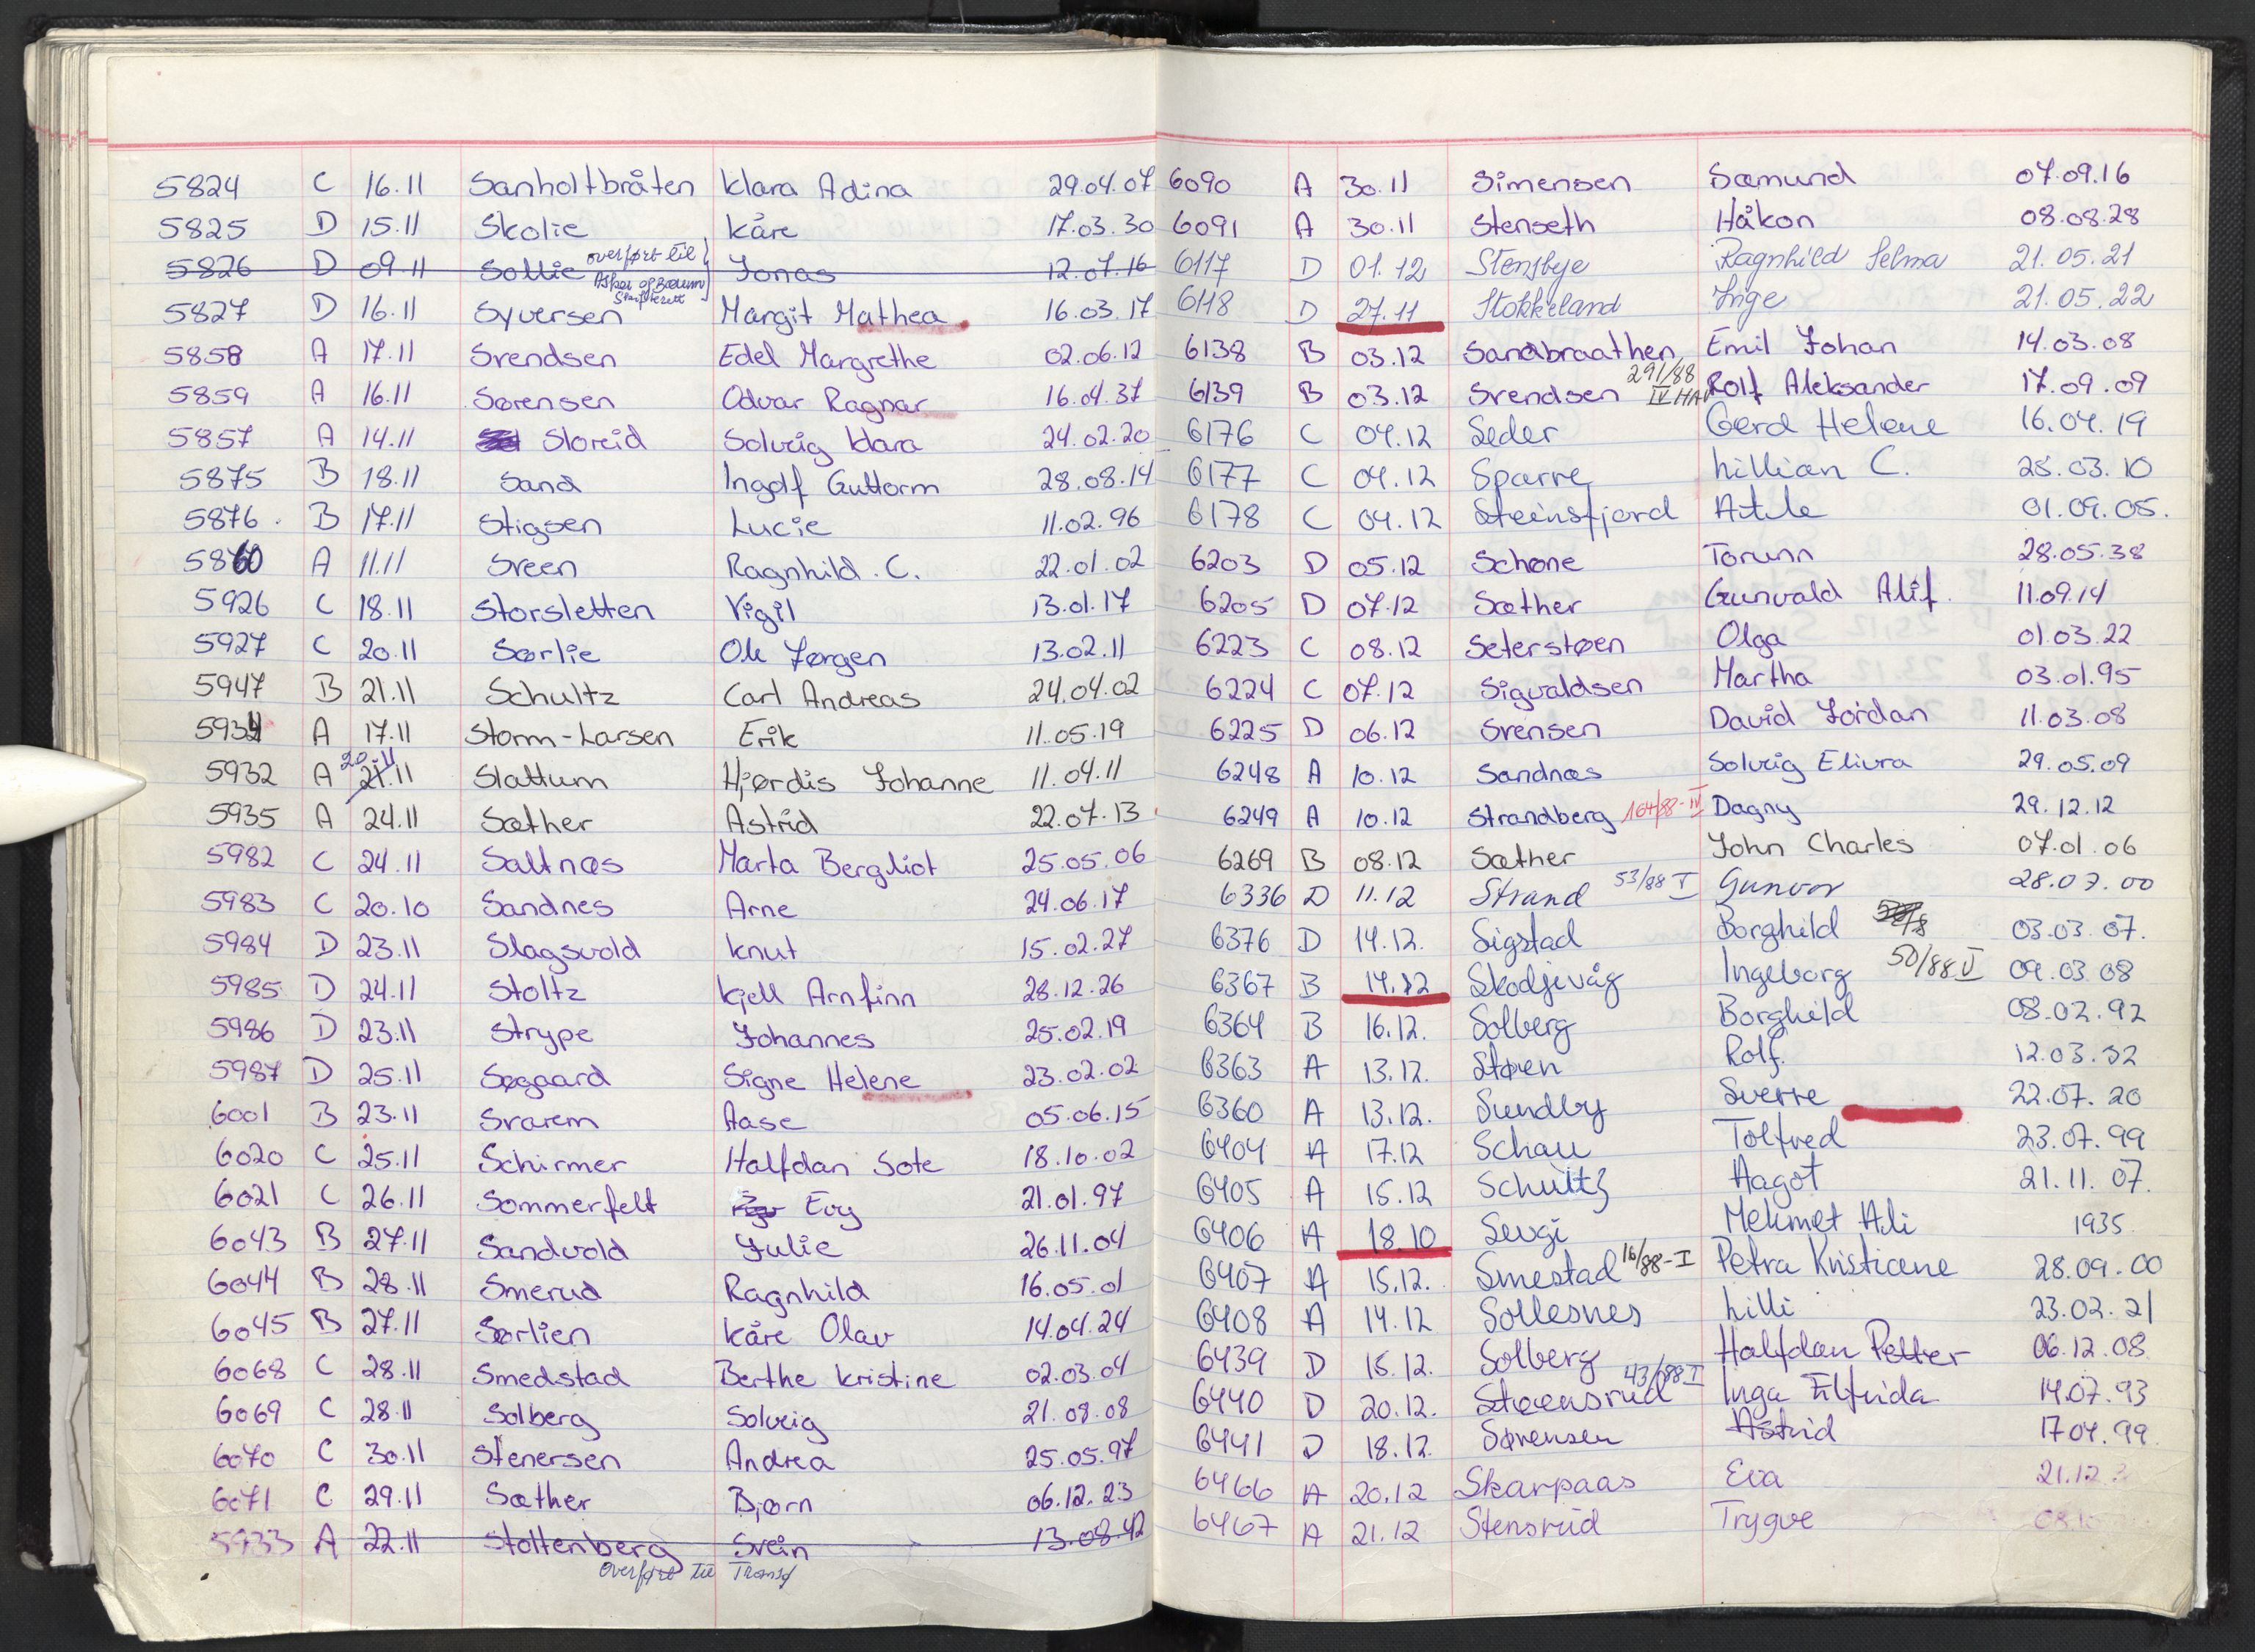 5824 C 16.11 Sanholtbråten Klara Adina 29.04.07
5825 D 15.11 Skolie Kåre 17.03.30
5826 D 09.11 Sollie overført til Asker og Bærum Skifterett Jonas 12.07.16
5827 D 16.11 Syversen Margit Mathea 16.03.17
5858 A 17.11 Svendsen Edel Margrethe 02.06.12
5859 A 16.11 Sørensen Odvar Ragnar 16.04.37
5857 A 14.11 Sloreid Solveig Klara 24.02.20
5875 B 18.11 Sand Ingolf Guttorm 28.08.14
5876 B 17.11 Stigsen Lucie 11.02.96
5860 A 11.11 Sveen Ragnhild . C. 22.01.02
5926 C 18.11 Storsletten Vigil 13.01.17
5927 C 20.11 Sørlie Ole Jørgen 13.02.11
5947 B 21.11 Schultz Carl Andreas 24.04.02
5934 A 17.11 Storm-Larsen Erik 11.05.19
5932 A 20.11 21.11 Slattum Hjørdis Johanne 11.04.11
5935 A 24.11 Sæther Astrid 22.07.13
5982 C 24.11 Saltnæs Marta Bergliot 25.05.06
5983 C 20.10 Sandnes Arne 24.06.17
5984 D 23.11 Slagsvold Knut 15.02.27
5985 D 24.11 Stoltz Kjell Arnfinn 28.12.26
5986 D 23.11 Strype Johannes 25.02.19
5987 D 25.11 Søgaard Signe Helene 23.02.02
6001 B 23.11 Svarem Aase 05.06.15
6020 C 25.11 Schirmer Halfdan Sote 18.10.02
6021 C 26.11 Sommerfelt Evy 21.01.97
6043 B 27.11 Sandvold Julie 26.11.04
6044 B 28.11 Smerud Ragnhild 16.05.01
6045 B 27.11 Sørlien Kåre Olav 14.04.24
6068 C 28.11 Smedstad Berthe Kristine 02.03.04
6069 C 28.11 Solberg Solveig 21.08.08
6070 C 30.11 Stenersen Andrea 25.05.97
6071 C 29.11 Sæther Bjørn 06.12.23
5933 A 22.11 Stoltenberg Svein 13.08.42
overført til Transf
6090 A 30.11 Simensen Sæmund 07.09.16
6091 A 30.11 Stenseth Håkon 08.08.28
6117 D 01.12 Stensbye Ragnhild Selma 21.05.21
6118 D 27.11 Stokkeland Inge 21.05.22
6138 B 03.12 Sandbraathen Emil Johan 14.03.08
6139 B 03.12 Svendsen 291/88 IV HAV Rolf Aleksander 17.09.09
6176 C 04.12 Seder Gerd Helene 16.04.19
6177 C 04.12 Sparre Lillian C. 28.03.10
6178 C 04.12 Steinsfjord Atle 01.09.05.
6203 D 05.12 Schøne Torunn 28.05.38
6205 D 07.12 Sæther Gunvald Alif. 11.09.14
6223 C 08.12 Seterstøen Olga 01.03.22
6224 C 07.12 Sigvaldsen Martha 03.01.95
6225 D 06.12 Svensen David Jordan 11.03.08
6248 A 10.12 Sandnæs Solveig Elivra 29.05.09
6249 A 10.12 Strandberg 164/88-IV Dagny 29.12.12
6269 B 08.12 Sæther John Charles 07.01.06
6336 D 11.12 Strand 53/88 I Gunvor 28.07.00
6376 D 14.12. Sigstad Borghild 03.03.07.
6367 B 14.12 Skodjevåg Ingeborg 50/88 V 09.03.08
6364 B 16.12. Solberg Borghild 08.02.92
6363 A 13.12. Støen Rolf. 12.03.32
6360 A 13.12. Sundby Sverre 22.07.20
6404 A 17.12 Schau Tolfred 23.07.99
6405 A 15.12 Schultz Aagot 21.11.07.
6406 A 18.10 Sevgi Mehmet Ali 1935
6407 A 15.12. Smestad 16/88-I Petra Kristiane 28.09.00
6408 A 14.12 Sollesnes Lilli 23.02.21
6439 D 15.12. Solberg Halfdan Petter 06.12.08
6440 D 20.12. Steensrud 43/88 I Inga Elfrida 14.07.93
6441 D 18.12. Sørensen Astrid 17.04.99.
6466 A 20.12 Skarpaas Eva 21.12
6467 A 21.12 Stensrud Trygve